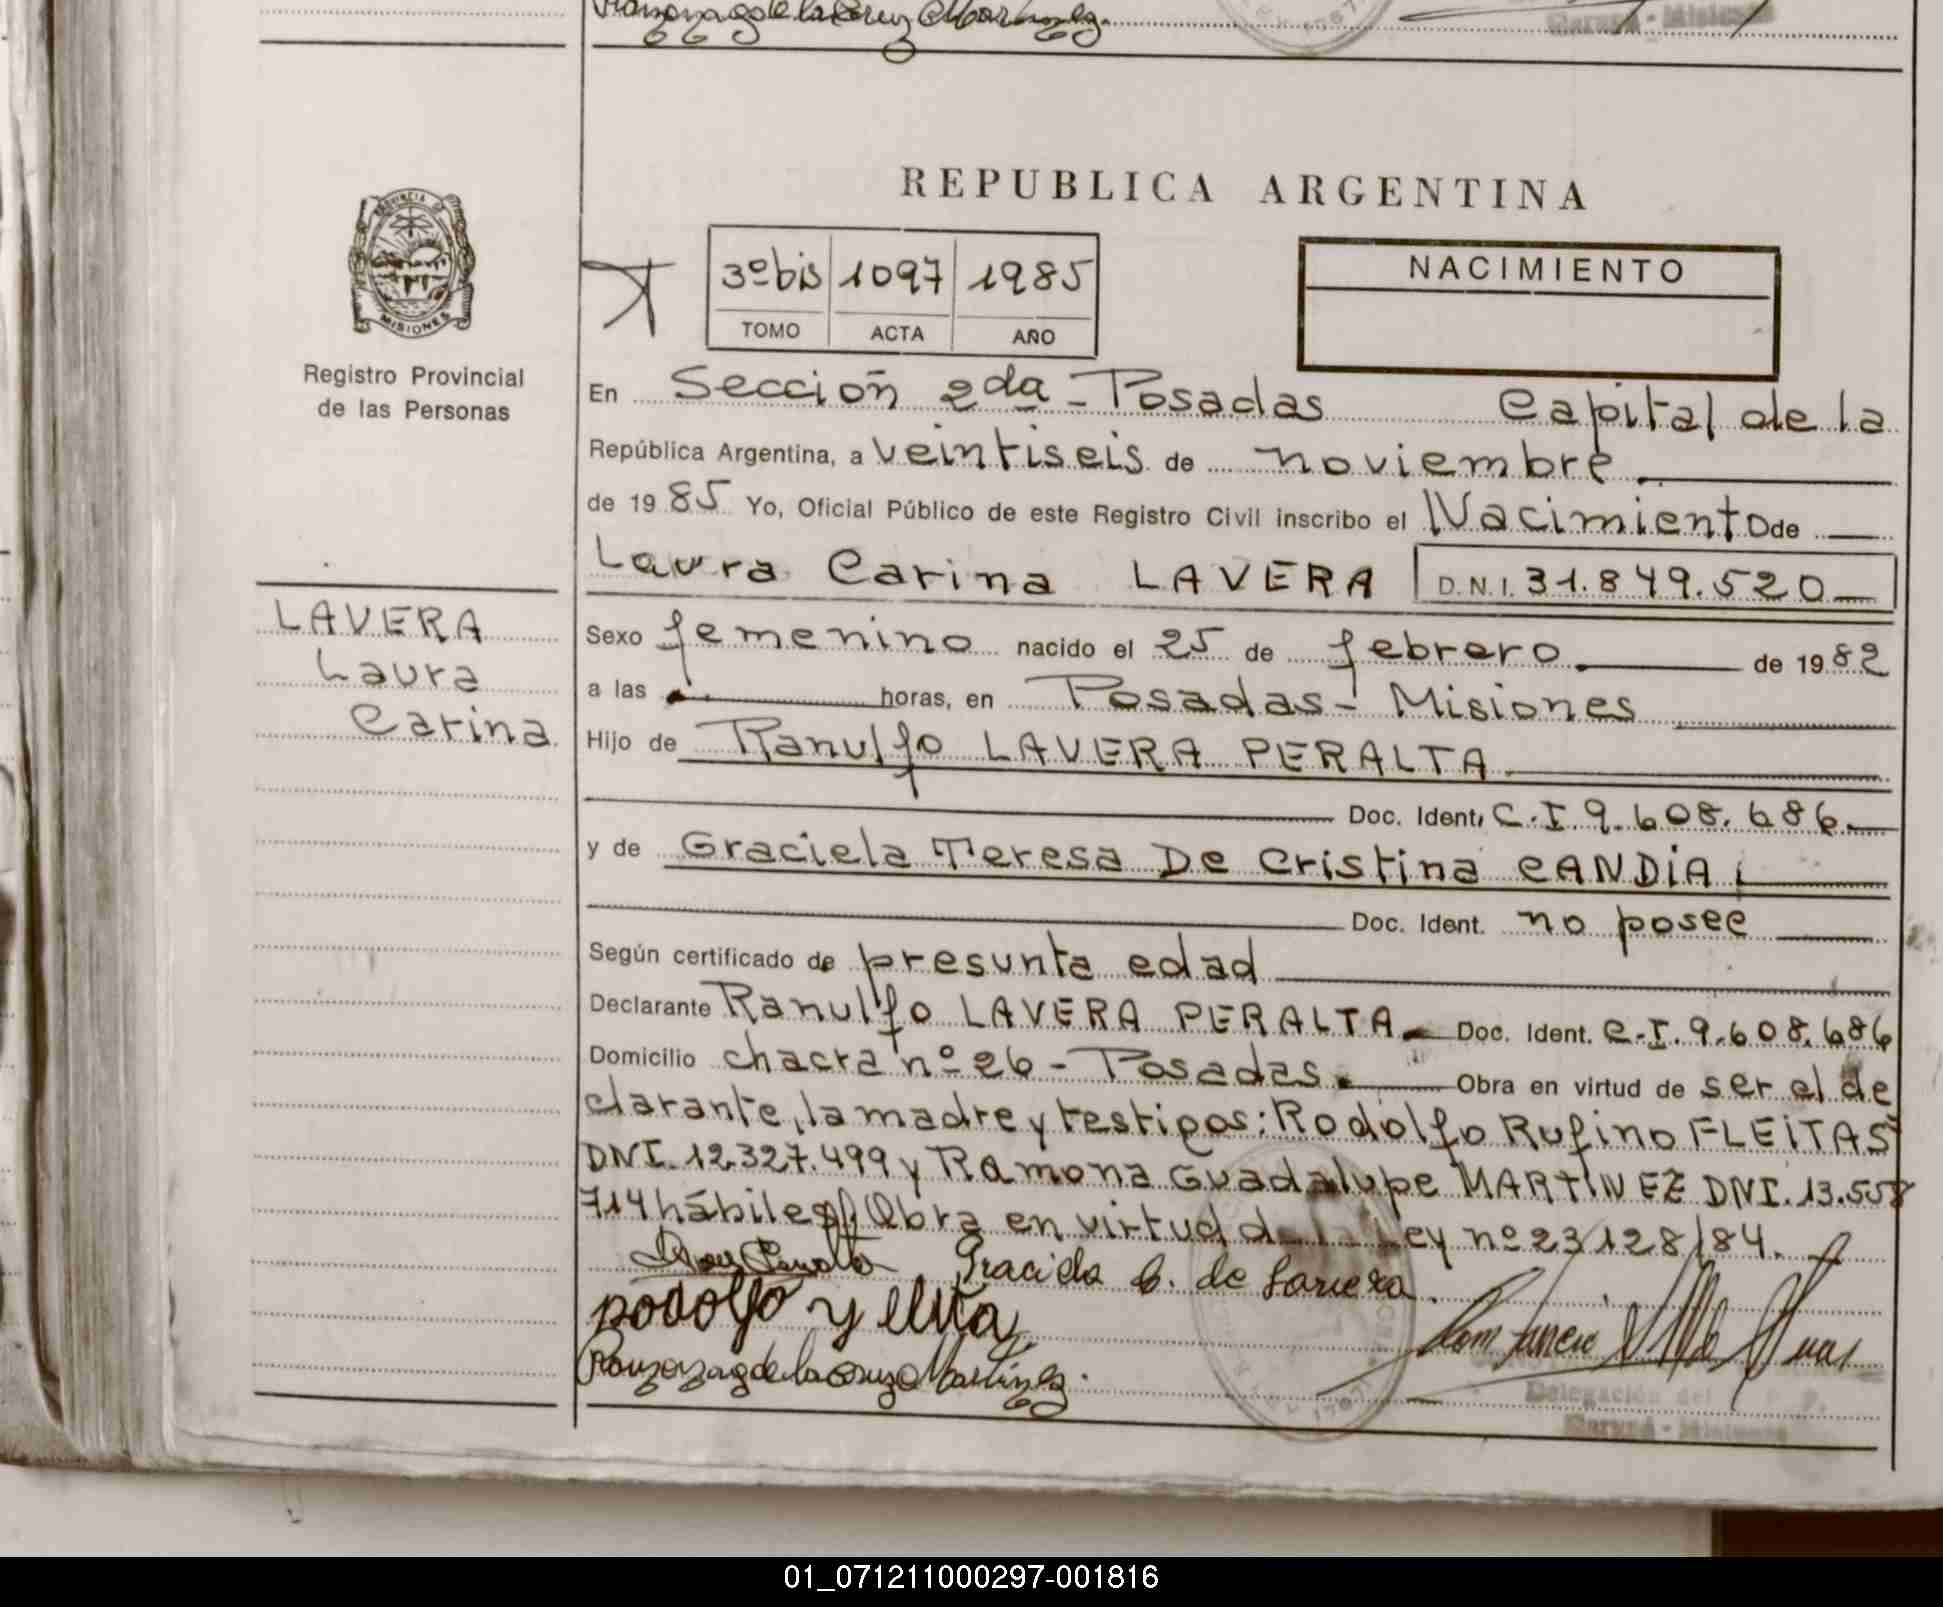 REPUBLICA ARGENTINA
PROVINCIA DE
MISIONES
Registro Provincial
de las Personas
3º bis 1097 1985
TOMO ACTA AÑO
NACIMIENTO
En Sección 2da - Posadas Capital de la
República Argentina, a veintiseis de noviembre
de 1985 Yo, Oficial Público de este Registro Civil inscribo el Nacimiento de
Laura Carina LAVERA D.N.I. 31.849.520
LAVERA
Laura
Carina
Sexo femenino nacido el 25 de febrero de 1982
a las horas, en Posadas - Misiones
Hijo de Ranulfo LAVERA PERALTA
Doc. Ident. C.I. 9.608.686
y de Graciela Teresa De Cristina CANDIA
Doc. Ident. no posee
Según certificado de presunta edad
Declarante Ranulfo LAVERA PERALTA Doc. Ident. C.I. 9.608.686
Domicilio chacra nº 26 - Posadas. Obra en virtud de ser el de
clarante, la madre y testigos: Rodolfo Rufino FLEITAS
DNI. 12.327.499 y Ramona Guadalupe MARTINEZ DNI. 13.558
714 hábiles// Obra en virtud de la Ley nº 23/128/84.
Graciela C. de Lavera.
Delegación del R. P. P.
Garupá - Misiones
01_071211000297-001816